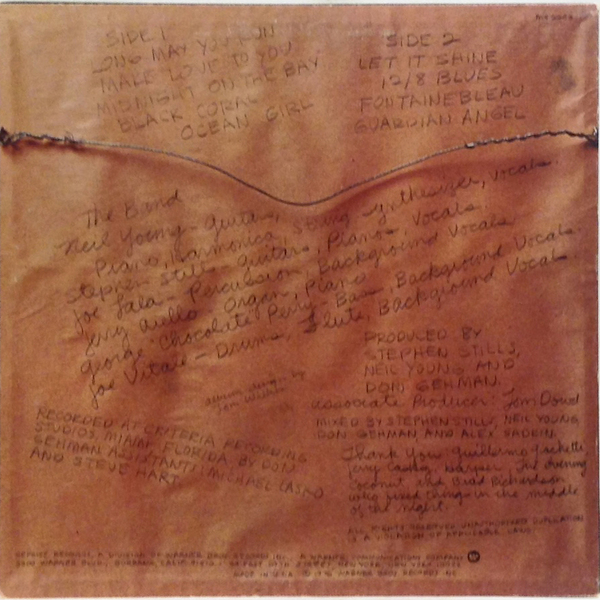 SIDE 1
LONG MAY YOU RUN
MAKE LOVE TO YOU
MIDNIGHT ON THE BAY
BLACK CORAL
OCEAN GIRL
SIDE 2
LET IT SHINE
12/8 BLUES
FONTAINEBLEAU
GUARDIAN ANGEL
The Band
Neil Young - guitar, String synthesizer, vocals.
Piano, Harmonica
Stephen Stills - guitar, Piano, Vocals.
Joe Lala - Percussion, Background Vocals
Jerry Aiello - Organ, Piano
George "Chocolate" Perry - Bass, Background Vocals.
Joe Vitale - Drums, Flute, Background Vocals.
album design by
Tom Wilkes
PRODUCED BY
STEPHEN STILLS,
NEIL YOUNG AND
DON GEHMAN.
Associate Producer: Tom Dowd
MIXED BY STEPHEN STILLS, NEIL YOUNG
DON GEHMAN AND ALEX SADKIN.
RECORDED AT CRITERIA RECORDING
STUDIOS, MIAMI FLORIDA, BY DON
GEHMAN ASSISTANTS: MICHAEL LASKO
AND STEVE HART
Thank You Guillermo
Jerry
Coconut and Brad Richardson
who fixed things in the middle
of the night.
ALL RIGHTS RESERVED UNAUTHORIZED DUPLICATION
IS A VIOLATION OF APPLICABLE LAWS.
REPRISE RECORDS, A DIVISION OF WARNER BROS RECORDS INC. A WARNER COMMUNICATIONS COMPANY
MADE IN U.S.A. © 1976 WARNER BROS. RECORDS INC.